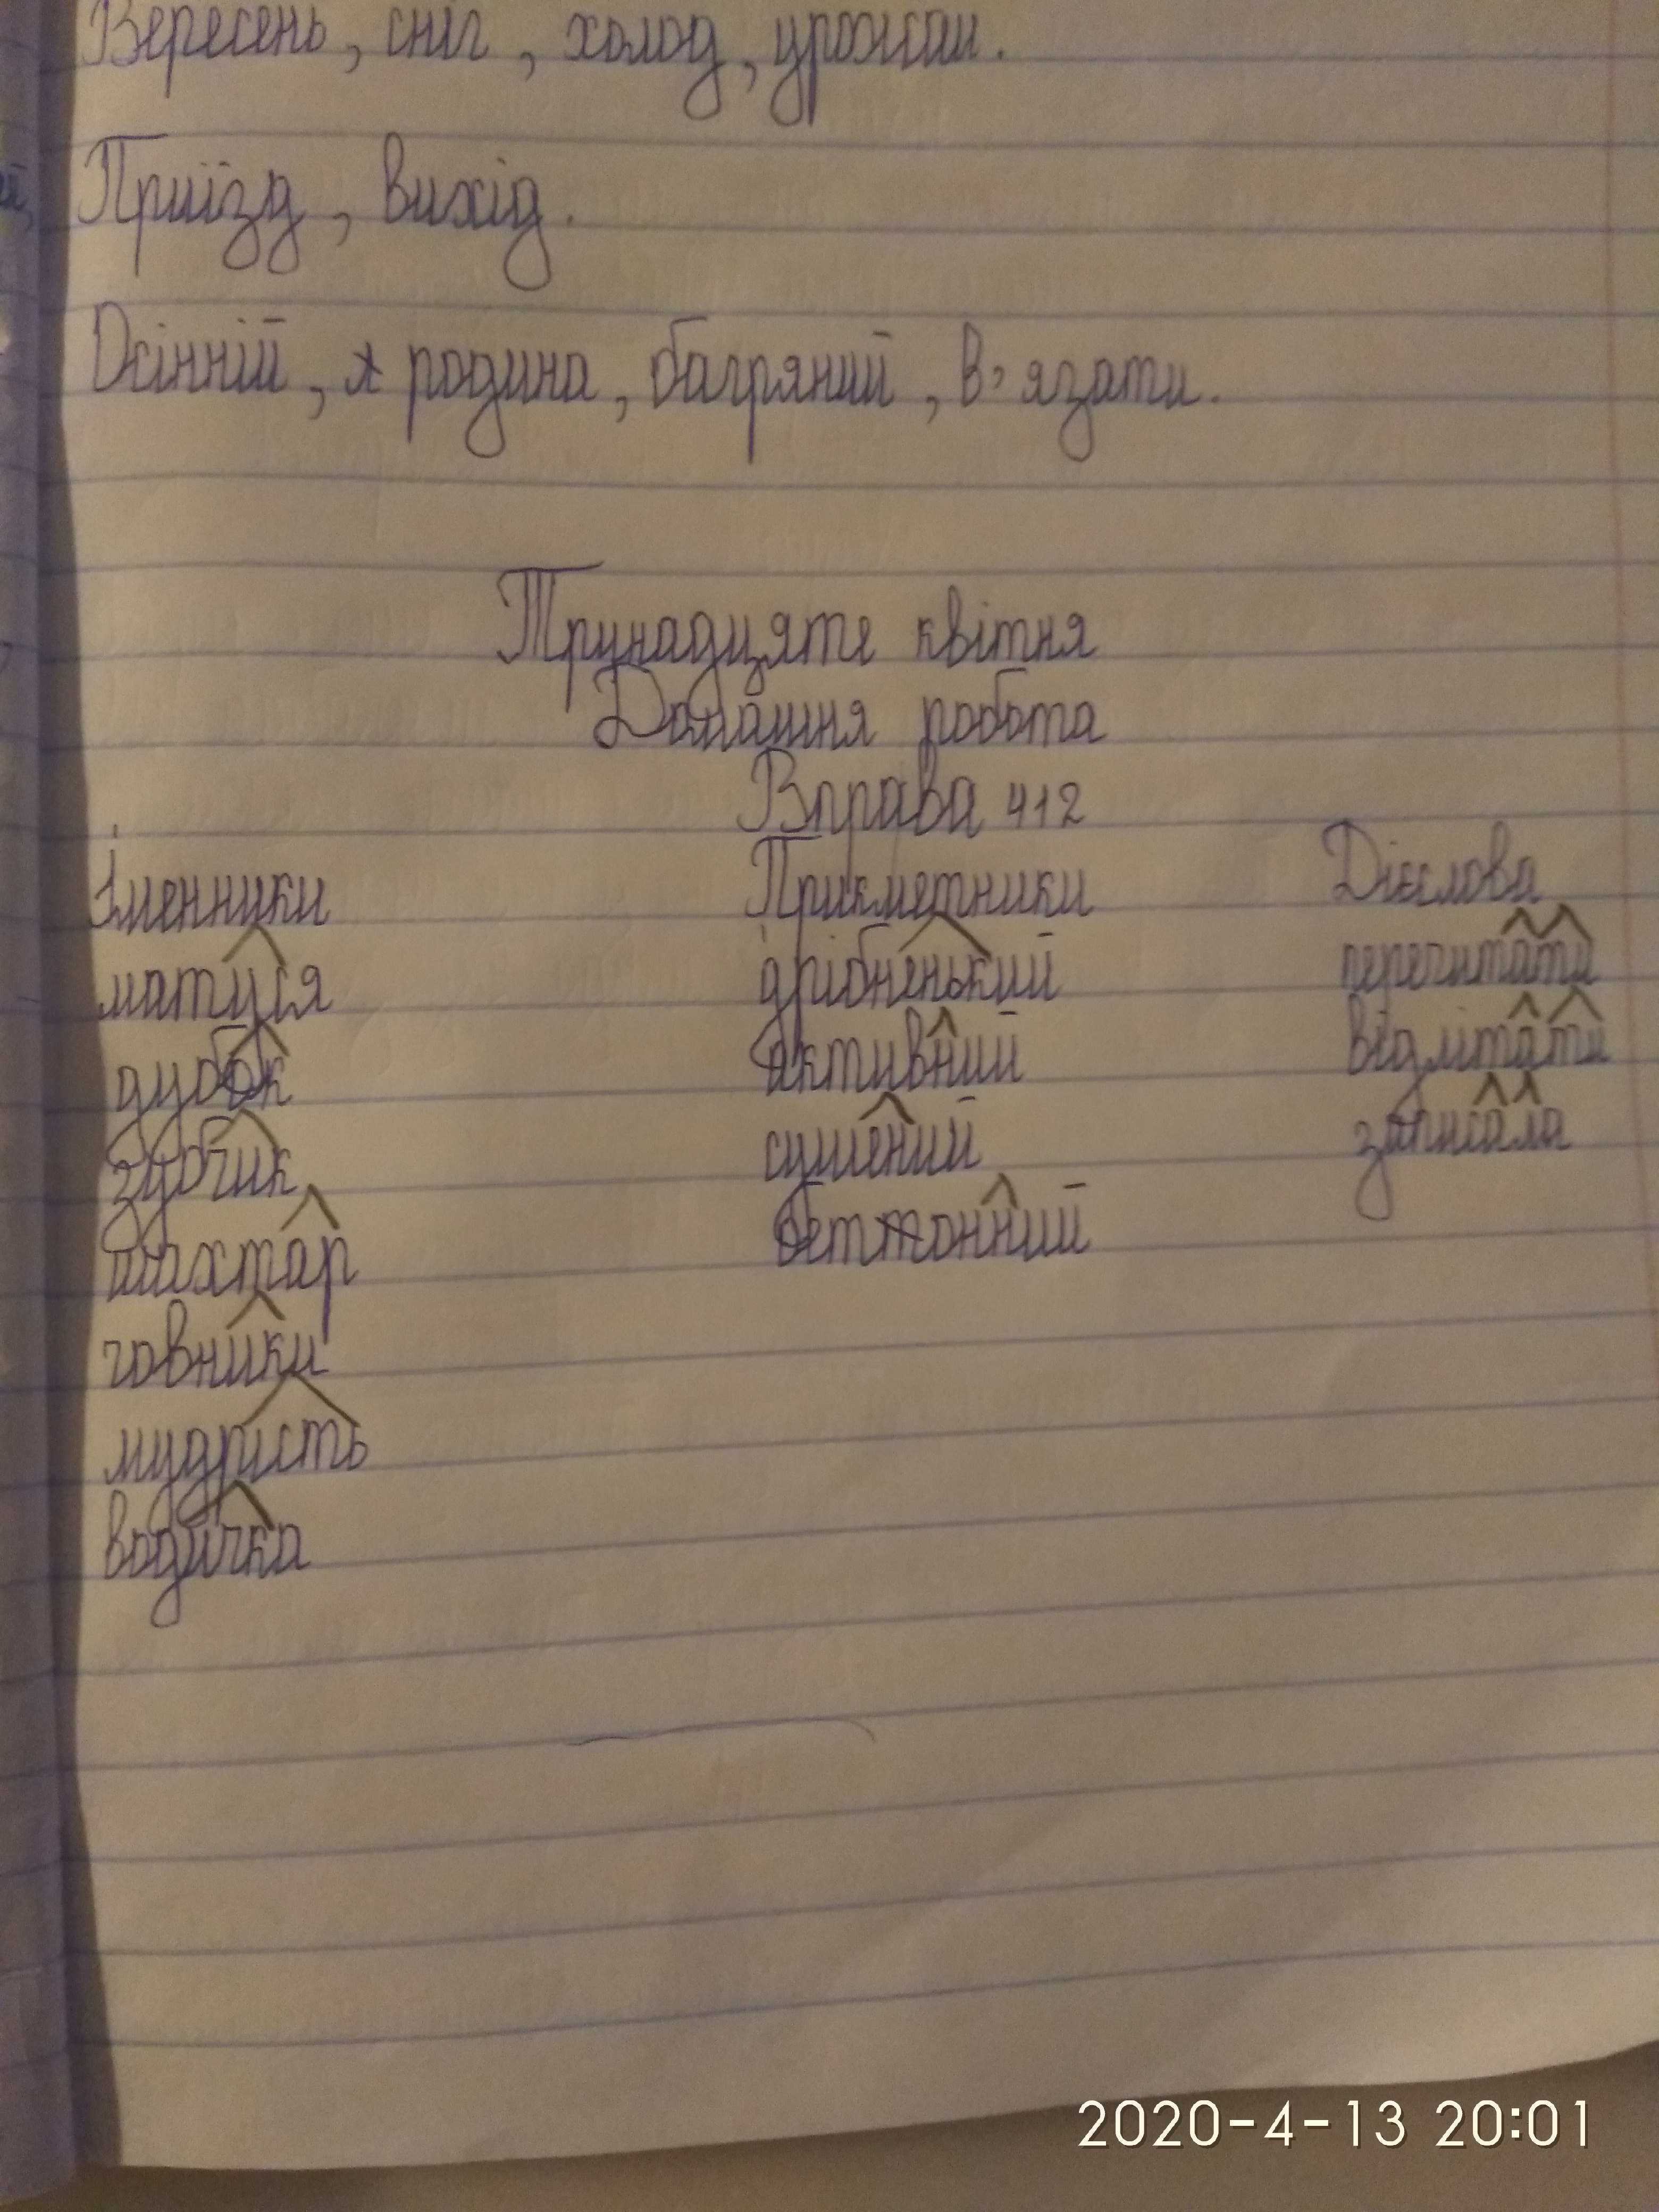 Вересень, сніг, холод, урожай.
Приїзд, вихід.
Осінній, родина, багряний, в'язати.
Тринадцяте квітня
Домашня робота
Вправа 412
Іменники Прикметники Дієслова
матуся дрібненький перечитати
дубок активний відлітати
зубчик сушений записала
шахтар бетонний
човники
мудрість
водичка
2020-4-13 20:01